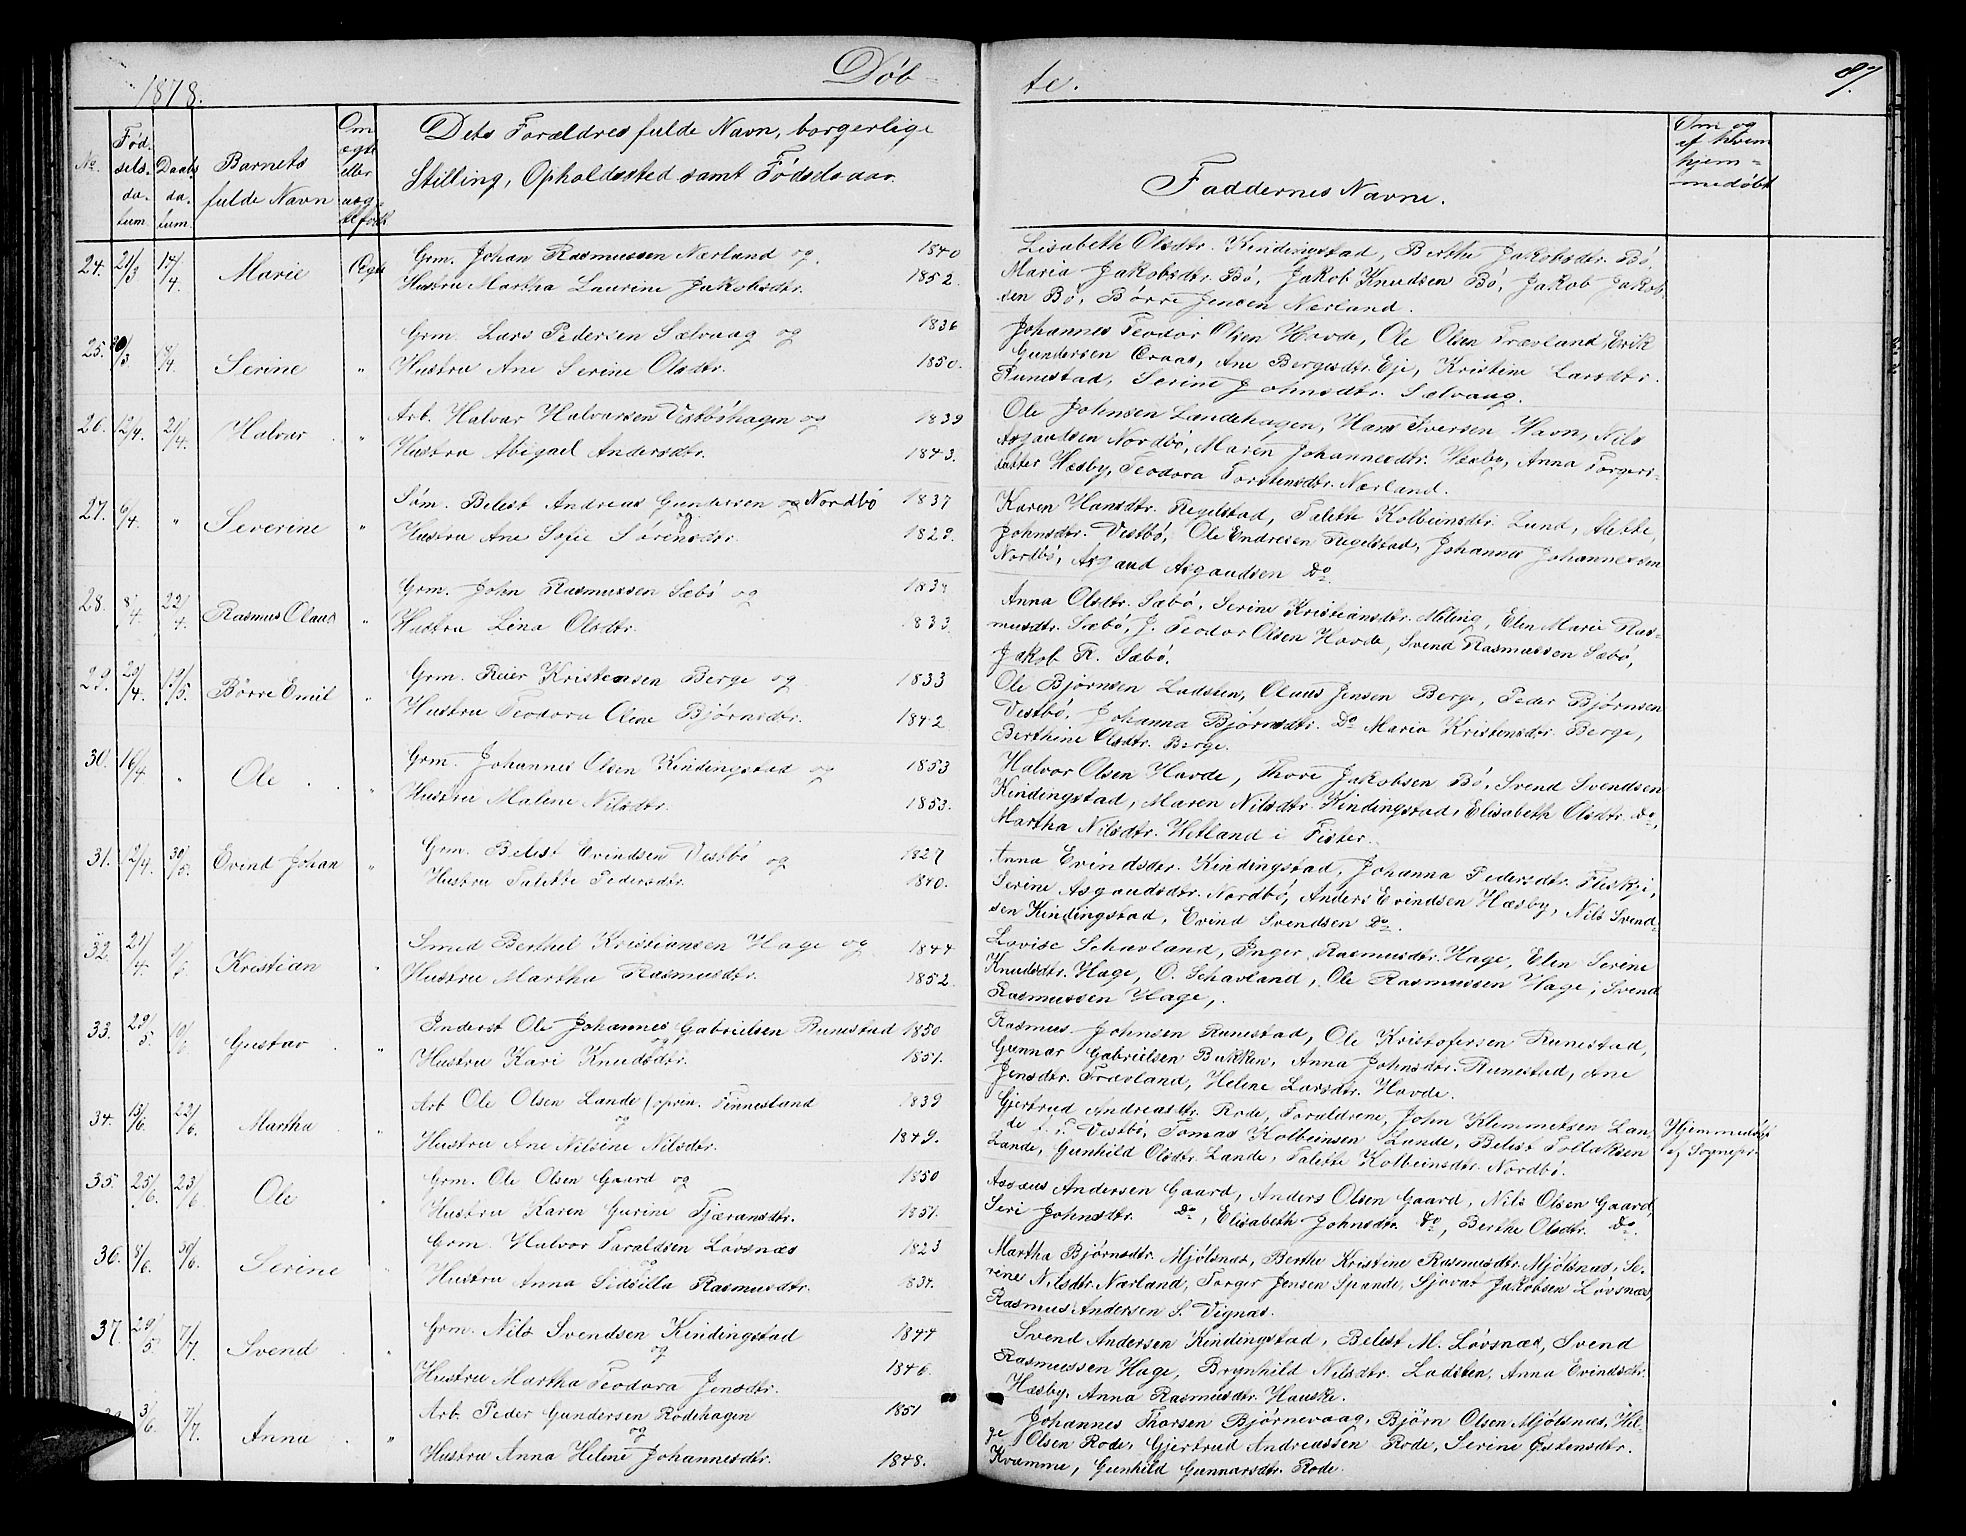 1878.
Døb-
te.
87.
No.
Fød-
sels-
da-
tum.
Daabs
da-
tum.
Barnets
fulde Navn
Om
ægte
eller
uæg-
te født
Dets Forældres fulde Navn, borgerlige
Stilling, Opholdssted samt Fødselsaar.
Faddernes Navne.
Om og
af hvem
hjem-
medøbt
24. 21/3 14/4. Marie Ægte
Grm. Johan Rasmussen Nærland og 1840
Hustru Martha Laurine Jakobsdtr. 1852.
Lisabeth Olsdtr. Kindingstad, Berthe Jakobsdtr. Bø,
Maria Jakobsdtr. Bø, Jakob Knudsen Bø, Jakob Jakob-
sen Bø, Børre Jensen Nærland.
25. /3 18/4. Serine "
Grm. Lars Pedersen Sælvaag og 1836
Hustru Ane Serine Olsdtr. 1850.
Johannes Teodor Olsen Hovde, Ole Olsen Trævland, Erik
Gundersen Aaraas, Ane Bergesdtr. Eje, Kristine Larsdtr.
Runestad, Serine Johnsdtr. Sælvaag.
26. 12/4. 21/4. Halvar "
Arb. Halvar Halvarsen Vestbøhagen og 1839
Hustru Abigael Andersdtr. 1843.
Ole Johnsen Landehagen, Hans Iversen Havn, Nils
Asgautsen Nordbø, Maren Johannesdtr. Hæsby, Anna Torgers-
datter Hæsby, Teodora Torstensdtr. Nærland.
27. 6/4. " Severine "
Søm. Belest Andreas Gundersen og Nordbø 1837
og
Hustru Ane Sofie Sørensdtr. 1829.
Karen Hansdtr. Regelstad, Talette Kolbeinsdtr. Lund, Alette
Johnsdtr. Vestbø, Ole Endresen Regelstad, Johannes Johannessen
Nordbø, Asgaud Asgaudsen Do.
28. 8/4. 22/4 Rasmus Olaus "
Grm. John Rasmussen Sæbø og 183
Hustru Lina Olsdtr. 1833
Anna Olsdtr. Sæbø, Serine Kristiansdtr. Meling, Elen Marie Ras-
musdtr. Sæbø, J. Teodor Olsen Hovde, Svend Rasmussen Sæbø,
Jakob R. Sæbø.
29. 23/4 19/5. Børre Emil "
Grm. Reier Kristensen Berge og 1833
Hustru Teodora Oline Bjørnsdtr. 1842
Ole Bjørnsen Ladsten, Olaus Jensen Berge, Peder Bjørnsen
Vestbø, Johanna Bjørnsdtr. Do Maria Kristensdtr. Berge,
Berthine Olsdtr. Berge.
30. 16/4 " Ole "
Grm. Johannes Olsen Kindingstad og 1853
Hustru Malene Nilsdtr. 1853.
Halvor Olsen Hovde, Thore Jakobsen Bø, Svend Svendsen
Kindingstad, Maren Nilsdtr. Kindingstad, Elisabeth Olsdtr. Do,
Martha Nilsdtr. Hetland i Fister.
31. 12/4. 30/5. Evind Johan "
Grm. Belest Evindsen Vestbø og 1827
Hustru Talette Pedersdtr. 1840.
Anna Evindsdtr. Kindingstad, Johanna Pedersdtr. Fleskje,
Serine Asgaudsdtr. Nordbø, Anders Evindsen Hæsby, Nils Svend-
sen Kindingstad, Evind Svendsen Do.
32. 21/4. Kristian "
Smed Berthel Kristiansen Hage og 1844
Hustru Martha Rasmusdtr. 1852.
Lovise Schavland, Inger Rasmusdtr. Hage, Elen Serine
Knudsdtr. Hage, O. Schavland, Ole Rasmussen Hage, Svend
Rasmussen Hage,.
33. 29/5. /6 Gustav "
Inderst Ole Johannes Gabrielsen Runestad 1850
og
Hustru Kari Knudsdtr. 1851.
Rasmus Johnsen Runestad, Ole Kristofersen Runestad,
Gunnar Gabrielsen Bakken, Anna Johnsdtr. Runestad, Ane
Jensdtr. Trævland, Helene Larsdtr. Hovde.
34. 15/6. 22/6. Martha "
Arb. Ole Olsen Lande (oprin. Finnestand 1839
og
Hustru Ane Nilsine Nilsdtr. 1849.
Gjertrud Andreasdtr. Rode, Forældrene, John Klemmetsen Lan-
de Vestbø, Tomas Kolbeinsen Lunde, Belest Tollaksen
Lande, Gunhild Olsdtr. Lande, Talette Kolbeinsdtr. Nordbø.
Hjemmedøbt
af Sognepr.
35. 25/6. 23/6 Ole "
Grm. Ole Olsen Gaard og 1850
Hustru Karen Gurine Fjæransdtr. 1851.
Asgaus Andersen Gaard, Anders Olsen Gaard, Nils Olsen Gaard,
Seri Johnsdtr. Do, Elisabeth Johnsdtr. Do, Berthe Olsdtr. Do.
36. 8/6. 30/6. Serine "
Grm. Halvor Taraldsen Løvsnæs 1823
og
Hustru Anna Sidsilla Rasmusdtr. 1834.
Martha Bjørnsdtr. Mjølsnæs, Berthe Kristine Rasmusdtr. Mjølsnæs, Se-
rine Nilsdtr. Nærland, Torger Jensen Spande, Sjovat Jakobsen Løvsnæs,
Rasmus Andersen S. Vignæs.
37. 29/5. 7/7. Svend "
Grm. Nils Svendsen Kindingstad 1844
og
Hustru Martha Teodora Jensdtr. 1846.
Svend Andersen Kindingstad, Belest M. Løvsnæs, Svend
Rasmussen Hage, Brynhild Nilsdtr. Ladsten, Anna Evindsdtr.
Hæsby, Anna Rasmusdtr. Hauske.
3/6. 7/7. Anna "
Arb. Peder Gundersen Rodehagen 1851
og
Hustru Anna Helene Johannesdtr. 1848.
Johannes Thorsen Bjørnevaag, Bjørn Olsen Mjølsnæs, Hel-
ge Olsen Rode, Gjertrud Andreassen Rode, Serine Østensdtr.
Kvamme, Gunhild Gunnarsdtr. Rode.